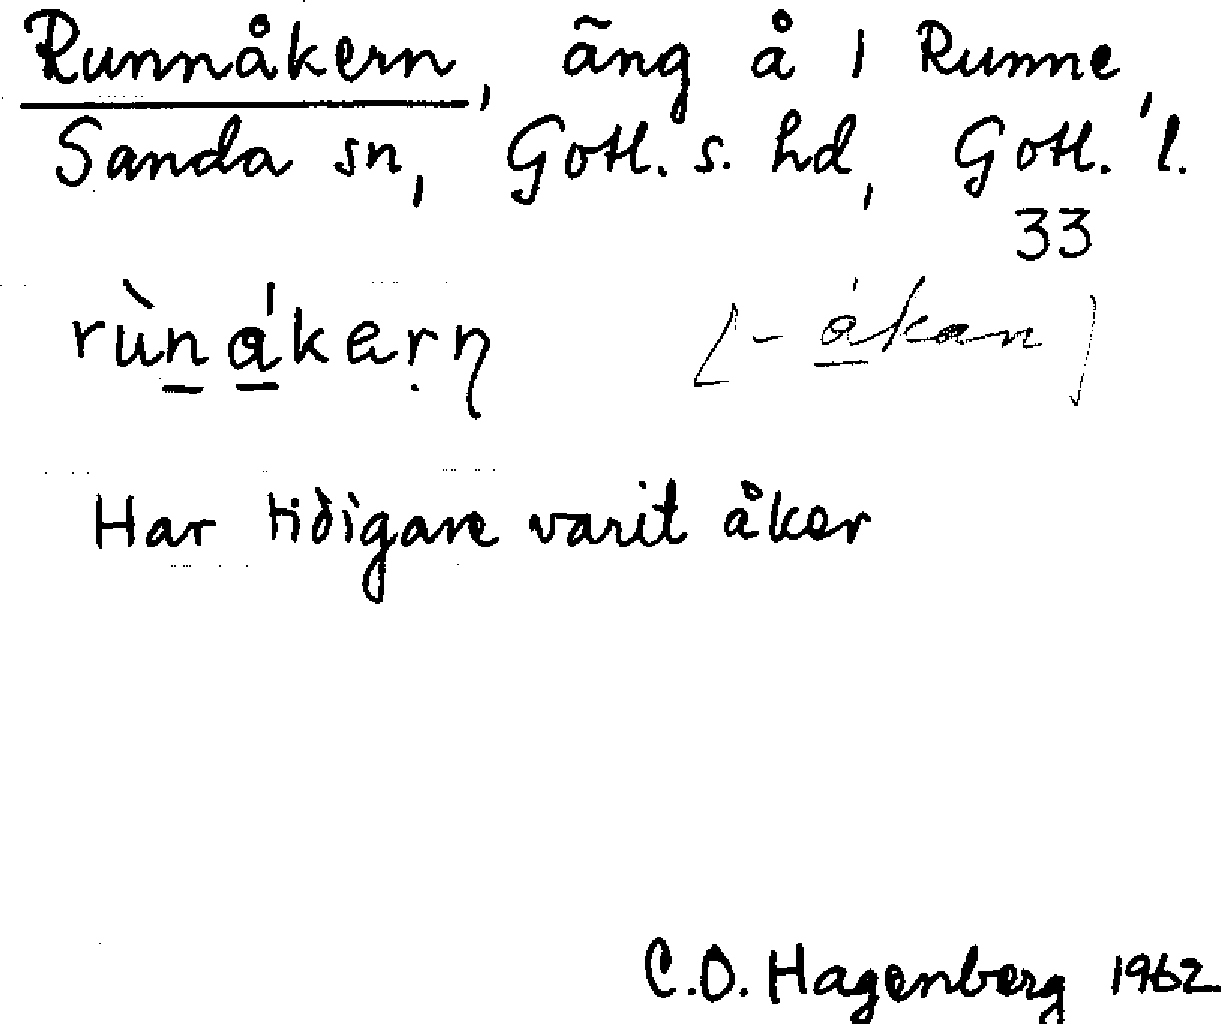 Runnåkern, äng å 1 Runne,
Sanda sn, Gotl. s. hd, Gotl. l.
33
rùn̲á̲kerṇ [-á̲kan]
Har tidigare varit åker
C.O. Hagenberg 1962